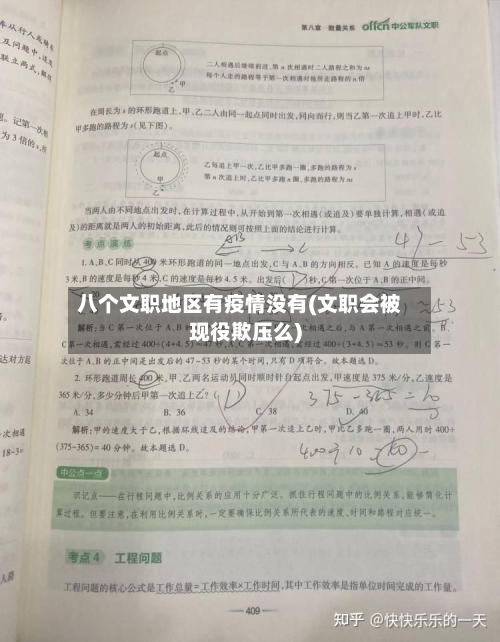 第八章 数量关系 offcn中公军队文职
起点
甲
乙
二人相遇后继续前进,第 n 次相遇时二人路程之和为 ns
每个人走的路程等于第一次相遇时他所走路程的 n 倍
在周长为 s 的环形跑道上,甲、乙二人由同一起点同时出发,同向而行,则当乙第一次追上甲时,乙比
甲多跑的路程为 s(见下图)。
起点
甲
乙
乙每追上甲一次,乙比甲多跑一圈,多跑的路程为 s
第 n 次追上时,乙比甲多跑 n 圈,多跑的路程为 ns
当两人由不同地点出发时,在计算过程中,从开始到第一次相遇(或追及)要单独计算,相遇(或追
及)的距离就是两人的初始距离,此后的情况则可按照上面的结论进行计算。
考点演练
47-53
1. A、B、C 同时从 400 米环形跑道的同一地点出发,C 与 A、B 的方向相反。已知 A 的速度是每秒
3 米,B 的速度是每秒 4 米,C 的速度是每秒 4.5 米。出发后( )秒,C 第一次位于 A、B 的正中间。
八个文职地区有疫情没有(文职会被
现役欺压么)
解析:当 C 第一次位于 A、B
C 第一次相遇,需经过 400÷(4+4.5)≈47 秒,
400÷(3+4.5)≈53 秒。则 C 第一
次位于 A、B 的正中间是出发后的 47-53 秒的某个时间,只有 D 项符合。故本题选 D。
2. 环形跑道周长 400 米,甲、乙两名运动员同时顺时针自起点出发,甲速度是 375 米/分,乙速度是
365 米/分,多少分钟后甲第一次追上乙?( )
D
375-365=10
A. 34 B. 36 C. 38 D. 40
解析:甲的速度大于乙,根据环线追及的结论,甲第一次追上乙时,甲比乙多跑一圈,两人用时 400÷
(375-365)=40 分钟。故本题选 D。
中公点一点
识记点——在行程问题中,比例关系的应用十分广泛。抓住行程问题中的比例关系,能够简化计
算过程。但要注意,在利用比例关系时,一定要确保比例关系所代表的速度、时间和路程对应统一。
考点 4 工程问题
工程问题的核心公式是工作总量=工作效率×工作时间,其中工作效率是指单位时间完成的工作量。
409
知乎 @快快乐乐的一天